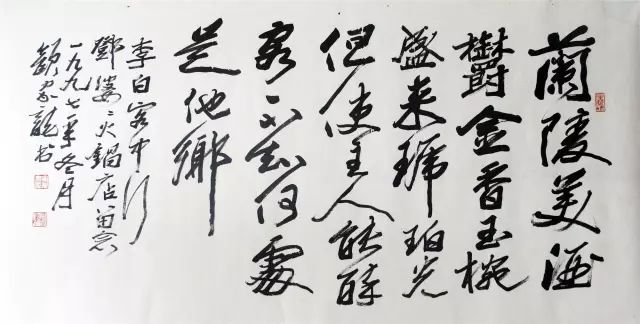 蘭陵美酒
欝金香玉椀
盛来琥珀光
但使主人能醉
客不知何處
是他鄉
李白客中行
鄧婆々火鍋店留念
一九九七年冬月
顏家龍书